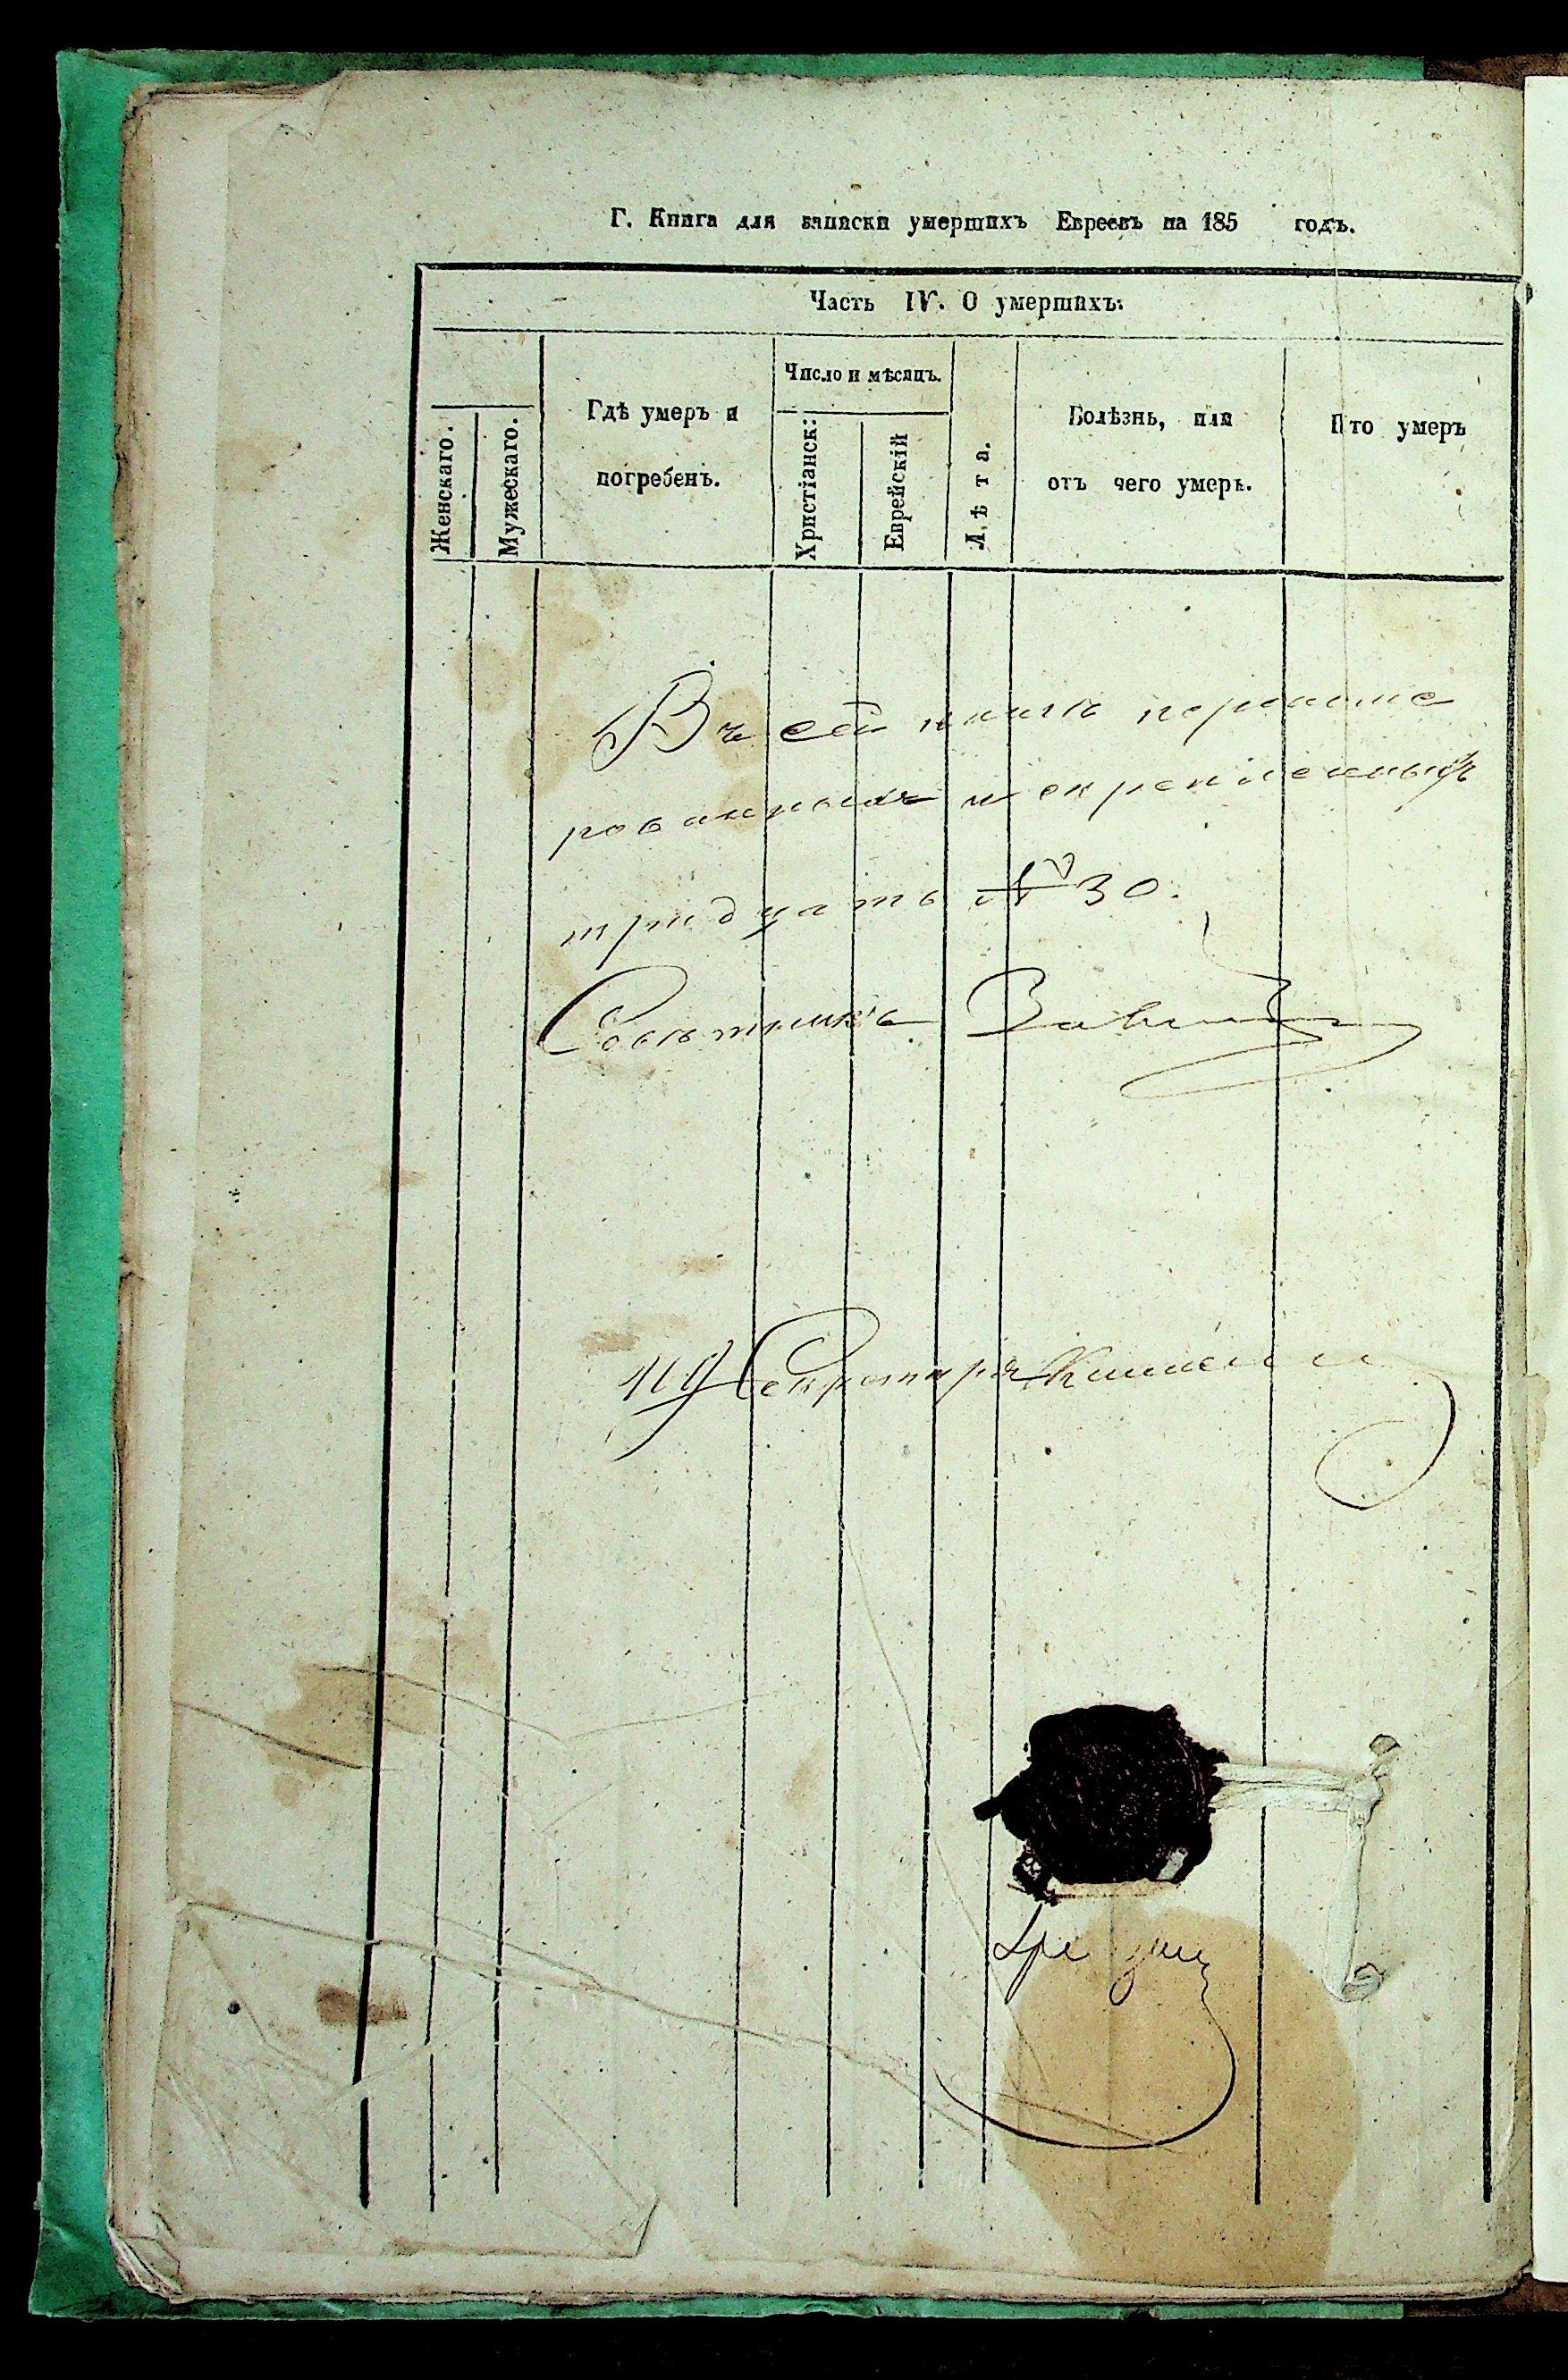 Г. Книга для записки умершихъ Евреевъ на 185 годъ.
Часть IV. О умершихъ:
Женскаго.
Мужескаго.
Гдѣ умеръ и
погребенъ.
Число и мѣсяцъ.
Христіанск:
Еврейскій
Лѣта.
Болѣзнь, или
отъ чего умеръ.
Кто умеръ
Въ сей книгѣ нерономе
рованныхъ и скрепленныхъ
тридцать № 30.
Советникъ
Секретарь